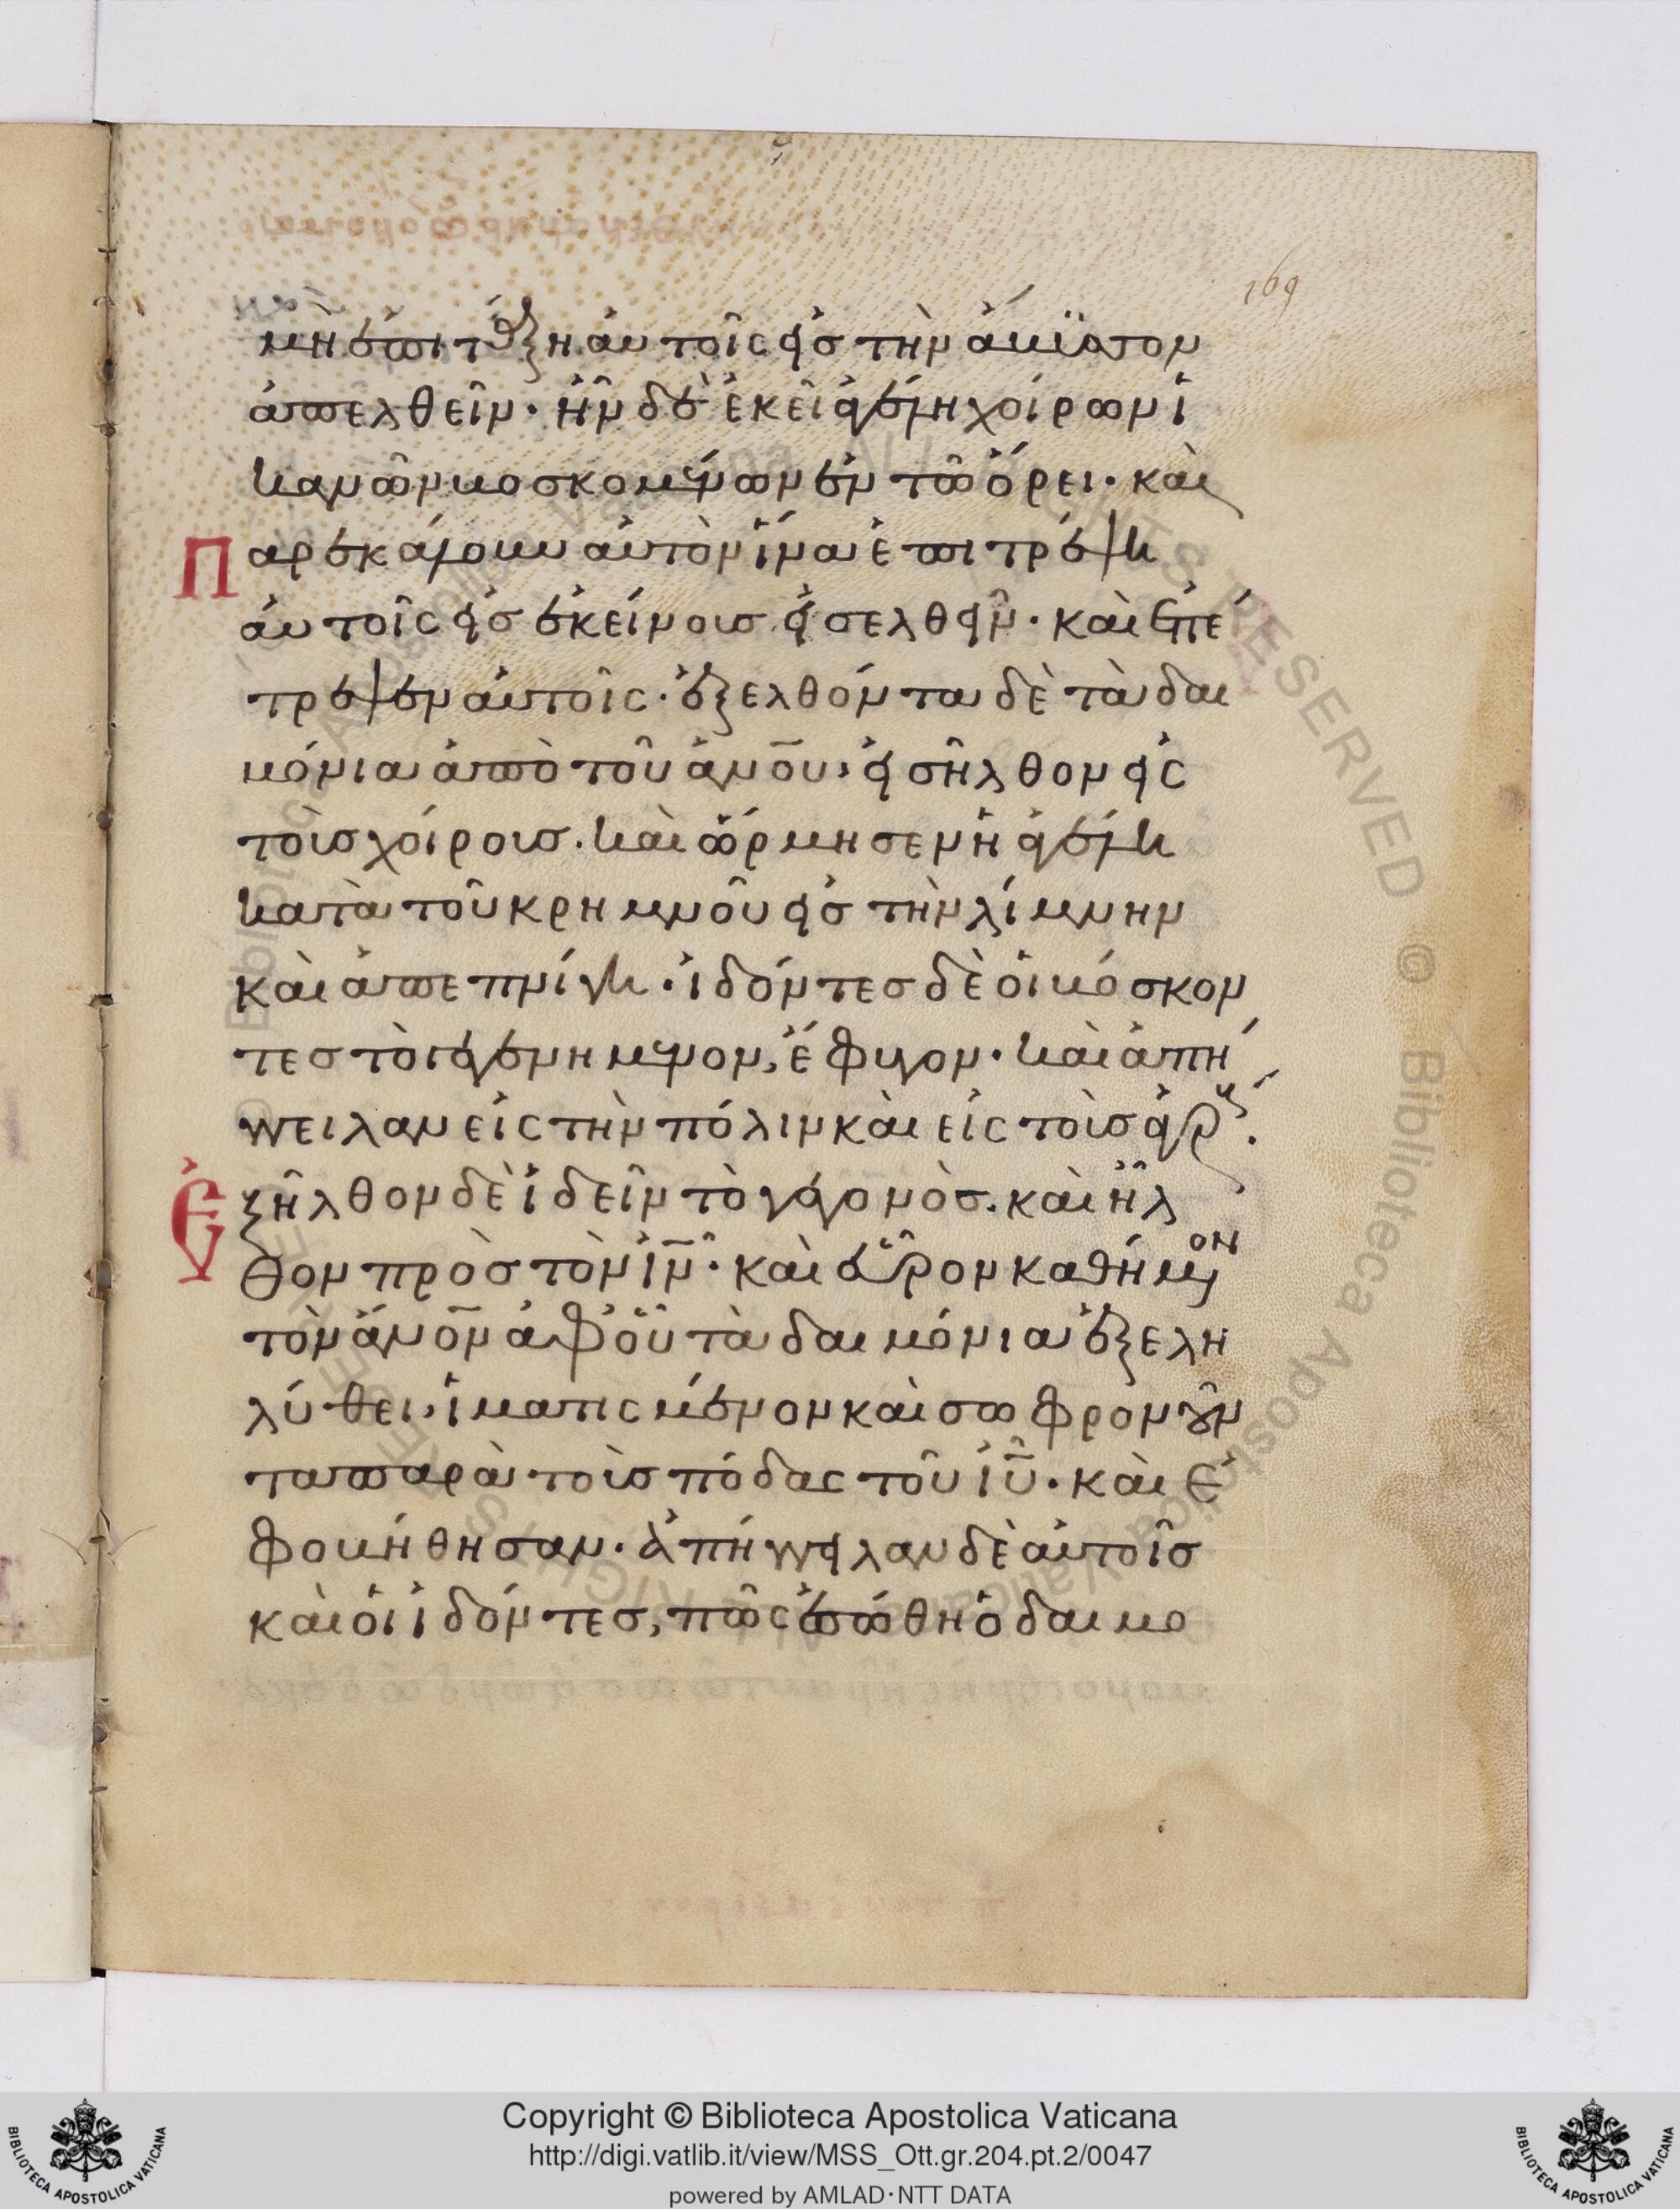 169
μὴ ἐπιτάξη αὐτοῖς εἰς τὴν ἄβυσσον
ἀπελθεῖν· ἦν δὲ ἐκεῖ ἀγέλη χοίρων ἱ
κανῶν βοσκομένων ἐν τῶ ὄρει· καὶ
Παρεκάλουν αὐτὸν ἵνα ἐπιτρέψη
αὐτοῖς εἰς ἐκείνους εἰσελθεῖν· καὶ ἐπέ
τρεψεν αὐτοῖς· ἐξελθόντα δὲ τὰ δαι
μόνια ἀπὸ τοῦ ἀνου· εἰσῆλθον εἰς
τοὺς χοίρους· καὶ ὥρμησεν ἡ ἀγέλη
κατὰ τοῦ κρημνοῦ εἰς τὴν λίμνην
καὶ ἀπεπνίγη· ἰδόντες δὲ οἱ βόσκον
τες τὸ γεγενημένον, ἔφυγον· καὶ ἀπή
γγειλαν εἰς τὴν πόλιν καὶ εἰς τοὺς ἀγρούς·
Ἐξῆλθον δὲ ἰδεῖν τὸ γεγονὸς· καὶ ἦλ
θον πρὸς τὸν ἰν· καὶ εὗρον καθήμενον
τὸν ἄνον ἀφ' οὗ τὰ δαιμόνια ἐξελη
λύθει, ἱματισμένον καὶ σωφρονοῦν
τα παρὰ τοὺς πόδας τοῦ ἰυ· καὶ ἐ
φοβήθησαν· ἀπήγγειλαν δὲ αὐτοῖς
καὶ οἱ ἰδόντες, πῶς ἐσώθη ὁ δαιμο
Copyright © Biblioteca Apostolica Vaticana
http://digi.vatlib.it/view/MSS_Ott.gr.204.pt.2/0047
powered by AMLAD·NTT DATA
BIBLIOTECA APOSTOLICA VATICANA
BIBLIOTECA APOSTOLICA VATICANA